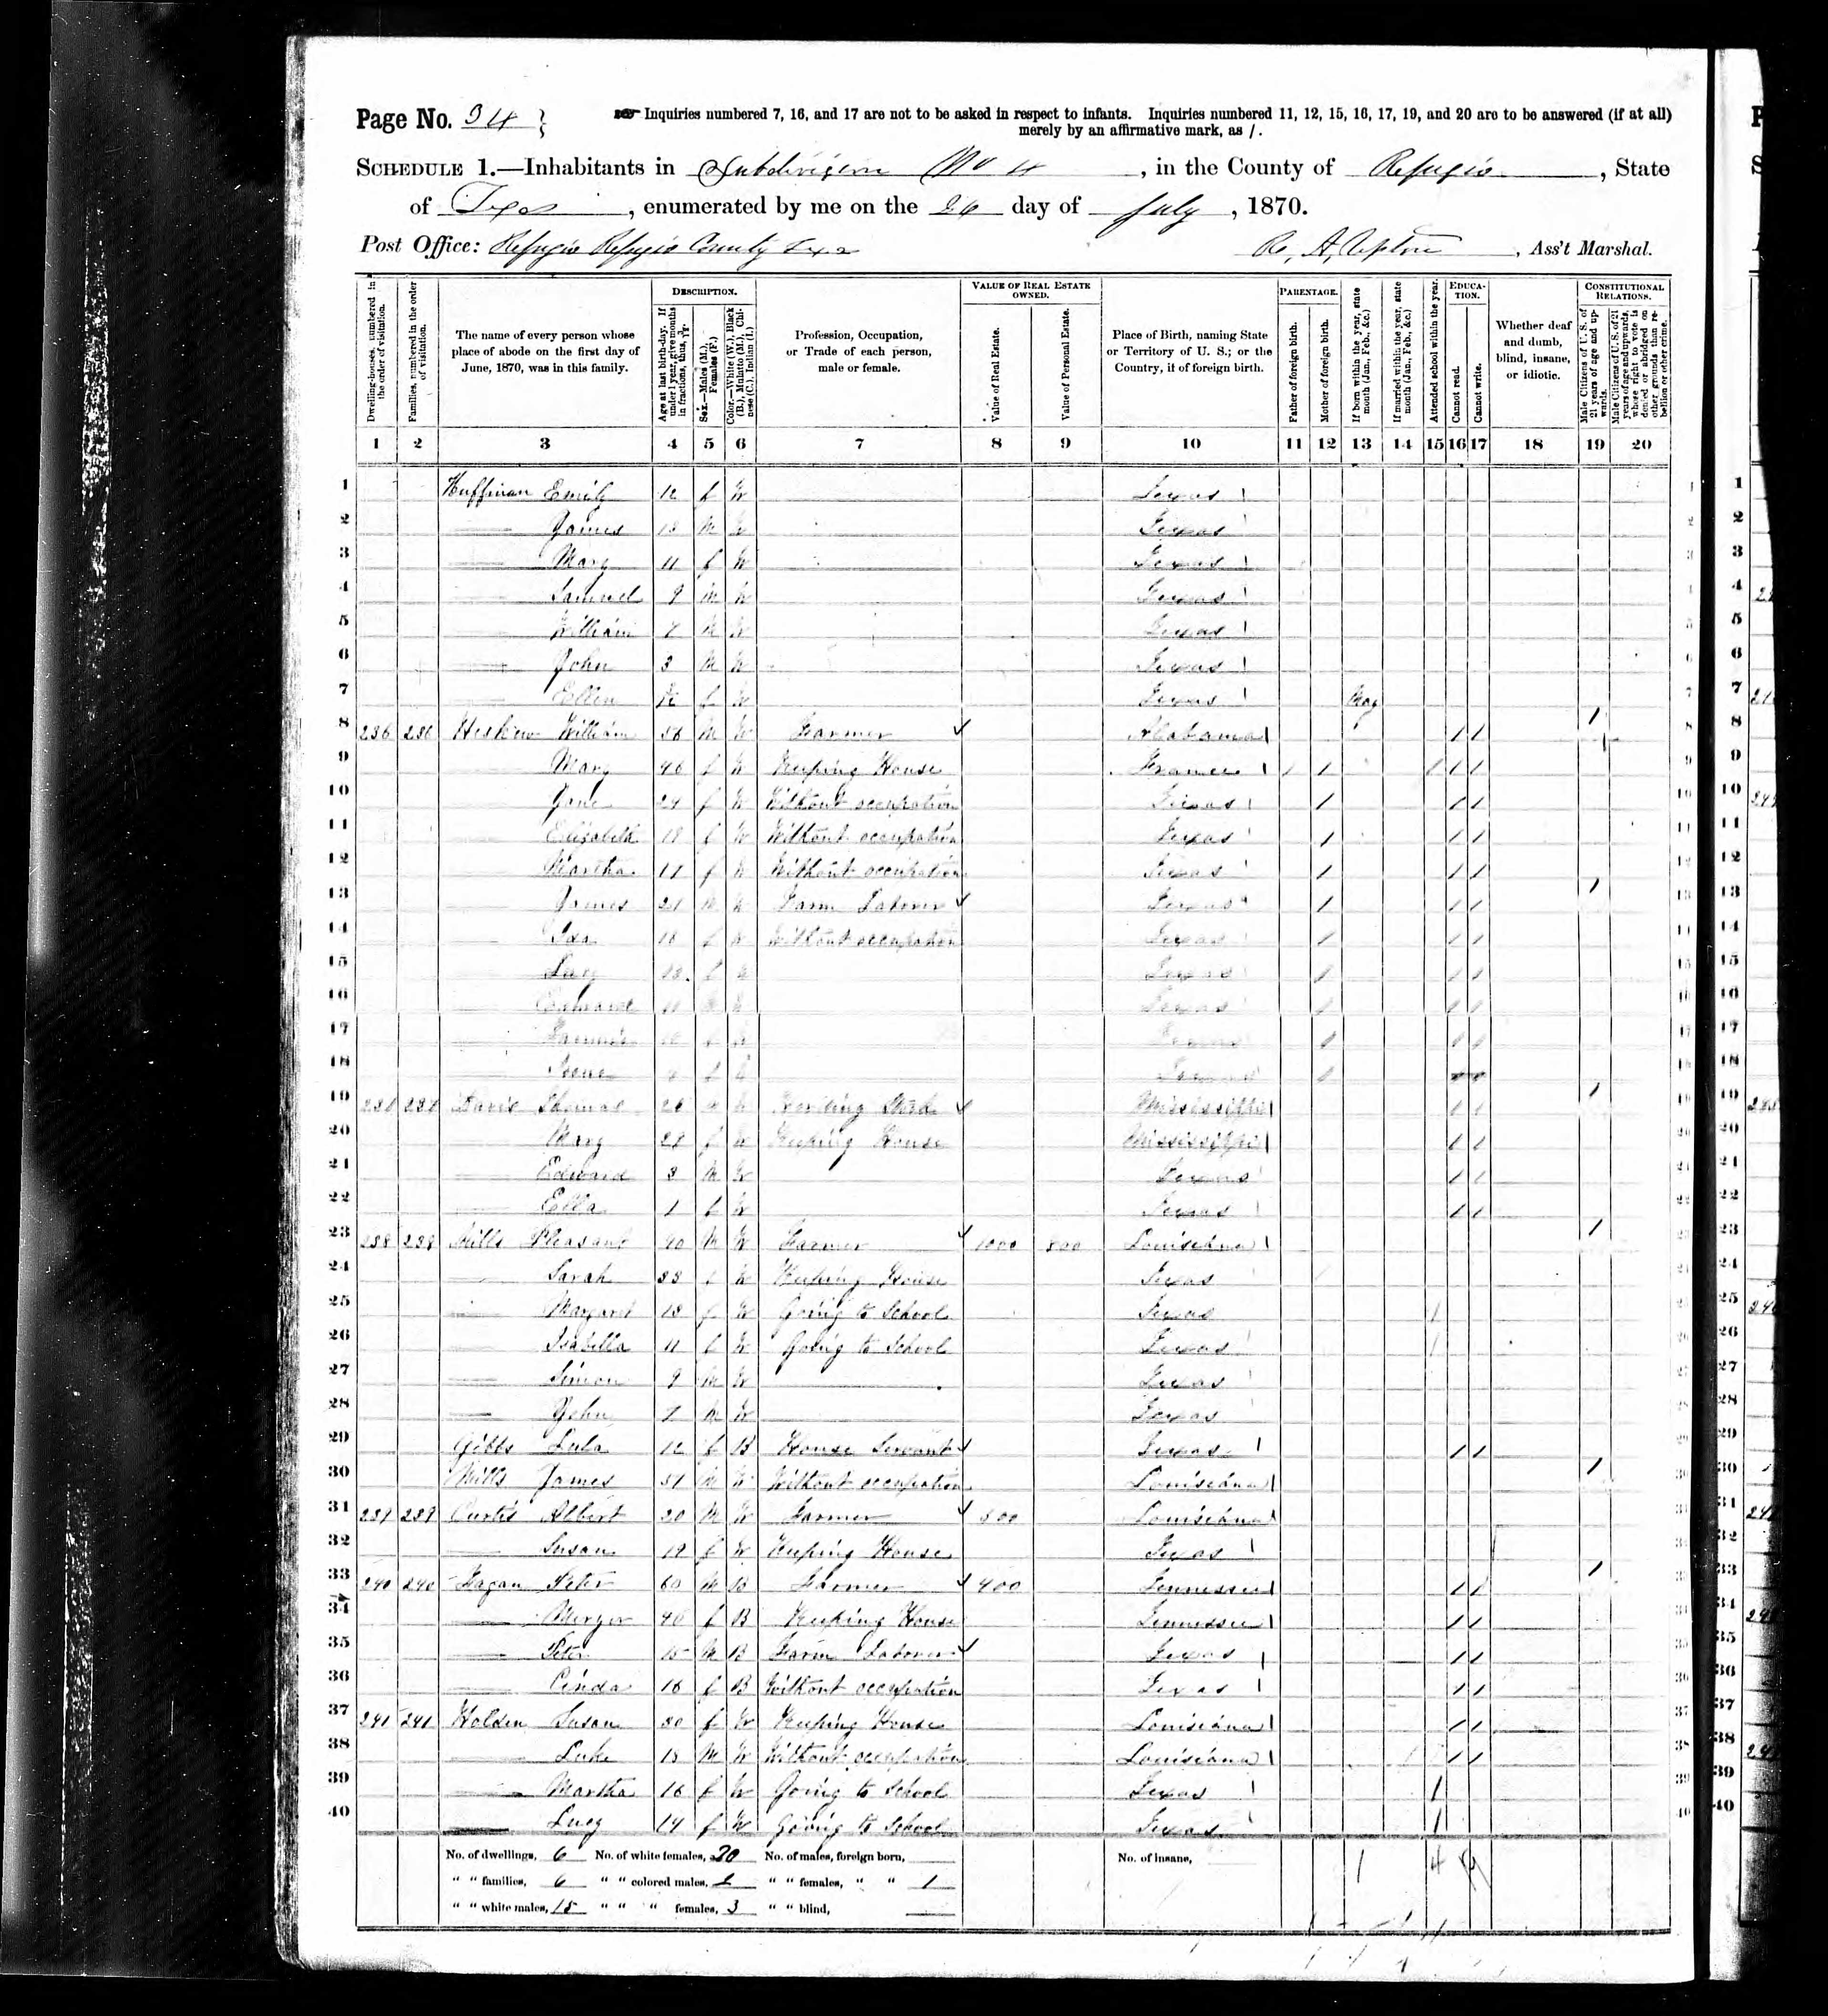 Page No. 34
Inquiries numbered 7, 16, and 17 are not to be asked in respect to infants. Inquiries numbered 11, 12, 15, 16, 17, 19, and 20 are to be answered (if at all)
merely by an affirmative mark, as /.
SCHEDULE 1.—Inhabitants in Subdivision No 4, in the County of Refugio, State
of Texas, enumerated by me on the 26 day of July, 1870.
Post Office: Refugio Refugio County Texas
R. A. Upton, Ass't Marshal.
Dwelling-houses, numbered in the order of visitation.
Families, numbered in the order of visitation.
The name of every person whose place of abode on the first day of June, 1870, was in this family.
DESCRIPTION.
Age at last birth-day. If under 1 year, give months in fractions, thus, 3/12.
Sex.—Males (M.), Females (F.)
Color.—White (W.), Black (B.), Mulatto (M.), Chinese (C.), Indian (I.)
Profession, Occupation, or Trade of each person, male or female.
VALUE OF REAL ESTATE OWNED.
Value of Real Estate.
Value of Personal Estate.
Place of Birth, naming State or Territory of U. S.; or the Country, if of foreign birth.
PARENTAGE.
Father of foreign birth.
Mother of foreign birth.
If born within the year, state month (Jan., Feb., &c.)
If married within the year, state month (Jan., Feb., &c.)
Attended school within the year.
EDUCATION.
Cannot read.
Cannot write.
Whether deaf and dumb, blind, insane, or idiotic.
CONSTITUTIONAL RELATIONS.
Male Citizens of U. S. of 21 years of age and upwards.
Male Citizens of U. S. of 21 years of age and upwards, whose right to vote is denied or abridged on other grounds than rebellion or other crime.
1 2 3 4 5 6 7 8 9 10 11 12 13 14 15 16 17 18 19 20
1 Huffman Emily 12 f W Texas
2 James 13 M W Texas
3 Mary 11 f W Texas
4 Samuel 9 M W Texas
5 William 7 M W Texas
6 John 3 M W Texas
7 Ellen f W Texas May
8 236 236 William M W Farmer Alabama / / /
9 Mary 46 f W Keeping House France / / / / /
10 Jane 24 f W Without occupation Texas / / /
11 Elizabeth 18 f W Without occupation Texas / / /
12 Martha 17 f W Without occupation Texas / / /
13 James 21 M W Farm Laborer Texas / / / /
14 Ida f W Without occupation Texas / / /
15 Lucy 13 f W Texas / / /
16 Edward 11 M W Texas / / /
17 Fannie f W Texas / / /
18 f W Texas / / /
19 237 237 Davis Thomas M W Mississippi / / /
20 Mary f W Keeping House Mississippi / /
21 Edward 3 M W Texas / /
22 Ella 1 f W Texas / /
23 238 238 Mills Pleasant 40 M W Farmer 1000 800 Louisiana /
24 Sarah 33 f W Keeping House Texas
25 Margaret 13 f W Going to School Texas /
26 Isabella 11 f W Going to School Texas /
27 Simon 9 M W Texas
28 John 7 M W Texas
29 Gibbs Lula 12 f B House Servant Texas / /
30 Mills James 51 M W Without occupation Louisiana /
31 239 239 Curtis Albert 20 M W Farmer 500 Louisiana
32 Susan 19 f W Keeping House Texas
33 240 240 Fagan Peter 60 M B Farmer 400 Tennessee / / /
34 f B Keeping House Tennessee / /
35 Peter 15 M B Farm Laborer Texas / /
36 Cinda 16 f B Without occupation Texas / /
37 241 241 Holden Susan f W Keeping House Louisiana / /
38 Luke 18 M W Without occupation Louisiana / /
39 Martha 16 f W Going to School Texas /
40 Lucy 14 f W Going to School Texas /
No. of dwellings, 6 No. of white females, 20 No. of males, foreign born, No. of insane, 1 4
" " families, 6 " " colored males, 2 " " females, " " 1
" " white males, 15 " " " females, 3 " " blind,